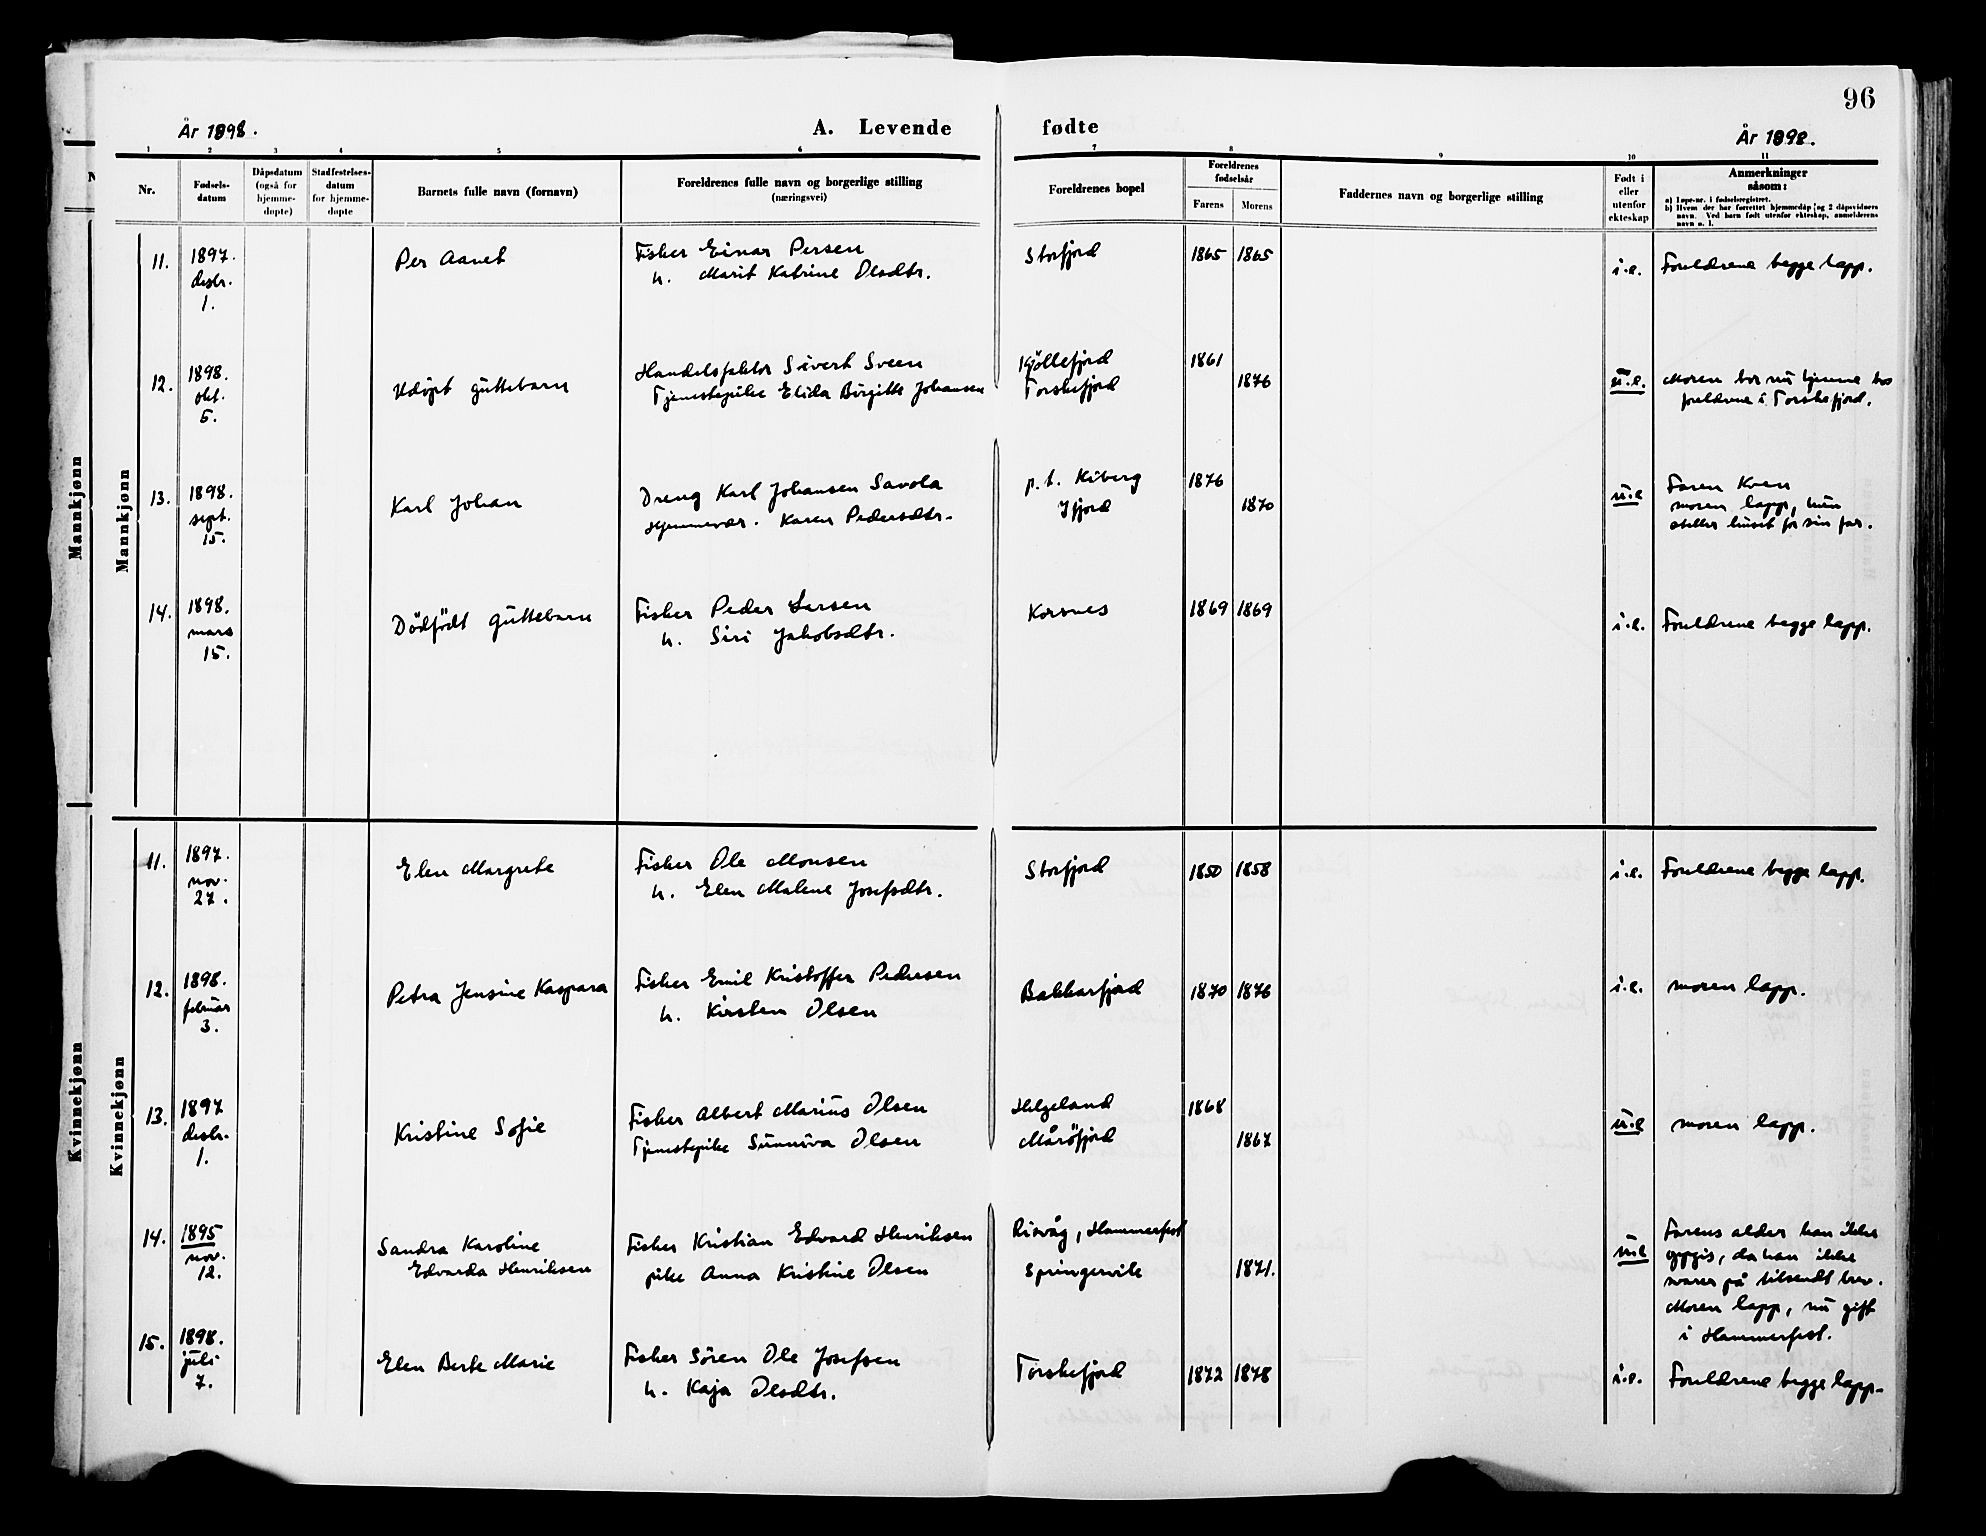 96
År 1898.
A. Levende fødte
År 1898.
1 2 3 4 5 6 7 8 9 10 11
Nr.
Fødsels-
datum
Dåpsdatum
(også for
hjemme-
døpte)
Stadfestelses-
datum
for hjemme-
døpte
Barnets fulle navn (fornavn)
Foreldrenes fulle navn og borgerlige stilling
(næringsvei)
Foreldrenes bopel
Foreldrenes
fødselsår
Farens Morens
Faddernes navn og borgerlige stilling
Født i
eller
utenfor
ekteskap
Anmerkninger
såsom:
a) Løpe-nr. i fødselsregistret.
b) Hvem der har forrettet hjemmedåp og 2 dåpsvidners
navn. Ved barn født utenfor ekteskap, anmelderens
navn o. l.
Mannkjønn
Mannkjønn
11.
1897.
desbr.
1.
Per Aanet
Fisker Einar Persen
h. Marit Katrine Olsdtr.
Storfjord
1865 1865
i.e.
Foreldrene begge lapp.
12.
1898.
okt.
5.
Udöpt guttebarn
Handelsfaktor Sivert Sveen
Tjenestepike Elida Birgitte Johansen
Kjöllefjord
Torskefjord
1861
1876
u.e.
Moren bor nu hjemme hos
foreldrene i Torskefjord.
13.
1898.
sept.
15.
Karl Johan
Dreng Karl Johansen Savola
Hjemmevær. Karen Pedersdtr.
p.t. Kiberg
Ifjord
1876
1870
u.e
Faren Kven
moren lapp, hun
steller huset for sin far.
14.
1898.
mars
15.
Dödfödt guttebarn
Fisker Peder Larsen
h. Siri Jakobsdtr.
Korsnes
1869 1869
i.e.
Foreldrene begge lapp.
Kvinnekjønn
Kvinnekjønn
11.
1897.
nov.
27.
Elen Margrete
Fisker Ole Monsen
h. Elen Malene Josefsdtr.
Storfjord
1850 1858
i.e.
Foreldrene begge lapp.
12.
1898.
februar
3.
Petra Jensine Kaspara
Fisker Emil Kristoffer Pedersen
h. Kirsten Olsen
Bakkarfjord
1870 1876
i.e.
moren lapp.
13.
1897
desbr.
1.
Kristine Sofie
Fisker Albert Marius Olsen
Tjenestepike Sunniva Olsen
Helgeland
Måröfjord
1868
1867
u.e
moren lapp.
14.
1895
nov.
12.
Sandra Karoline
Edvarda Henriksen
Fisker Kristian Edvard Henriksen
pike Anna Kristine Olsen
Risvåg, Hammerfest
Springervik
1871.
u.e
Farens alder kan ikke
opgis, da han ikke
svarer på tilsendt brev.
Moren lapp, nu gift
i Hammerfest.
15.
1898.
juli
7.
Elen Berte Marie
Fisker Sören Ole Josefsen
h. Kaja Olsdtr.
Torskefjord
1872 1878
i.e.
Foreldrene begge lapp.